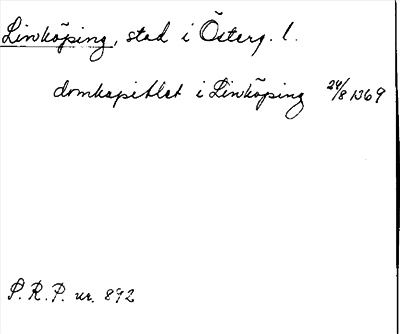 Linköping, stad i Österg. l.
domkapitlet i Linköping 24/8 1369
S.R.P. nr. 892